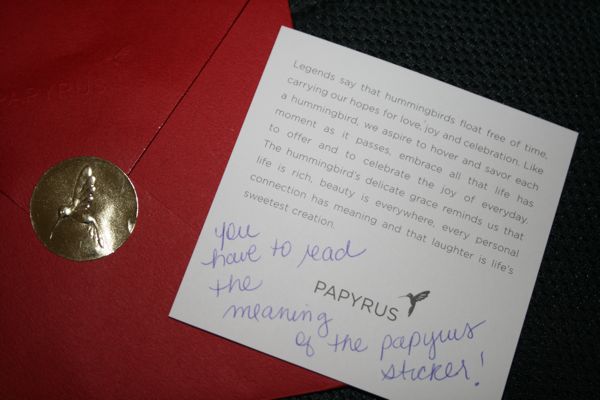 Legends say that hummingbirds float free of time,
carrying our hopes for love, joy and celebration. Like
a hummingbird, we aspire to hover and savor each
moment as it passes, embrace all that life has
to offer and to celebrate the joy of everyday.
The hummingbird's delicate grace reminds us that
life is rich, beauty is everywhere, every personal
connection has meaning and that laughter is life's
sweetest creation.
you
have to read
the
PAPYRUS
meaning
of the papyrus
sticker!